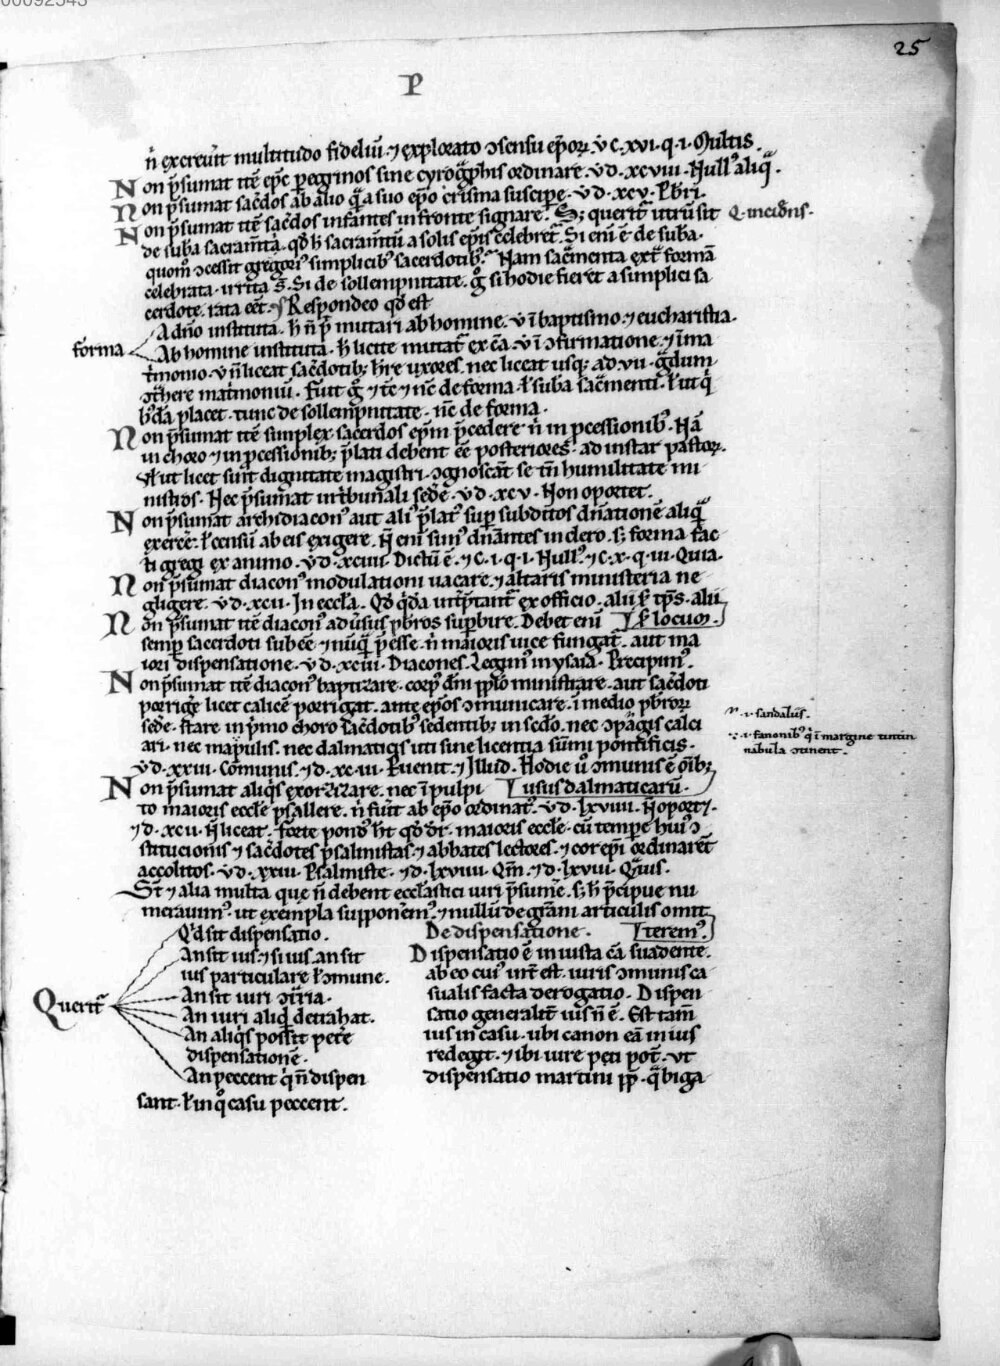 00092543
25
P
n̄ excreuit multitudo fideliū. ⁊ explorato ↄsensu ep̄orꝝ. v̄. C. xvi. q. i. Multis.
Non p̄sumat itē ep̄c peregrinos sine cyrog̃phis ordinare. v̄. d. xcviii. Null᷒ aliq̃.
Non p̄sumat sac̄dos ab alio q̃ a suo ep̄o crisma suscipe. v̄. d. xcv. Pb̄ri.
Non p̄sumat itē sac̄dos infantes in fronte signare. S; querit̃ utrū sit Q. incid̄ns.
de suba sacram̄ta. qd̄ h̄ sacram̄tū a solis ep̄is celebret̃. Si eni ē de suba.
quom̊ ↄcessit gregori᷒ simplicib᷒ sacerdotib᷒. Nam sac̄menta ext̃ formā
celebrata. irrita s̄. Si de sollempnitate. g̊ si hodie fieret a simplici sa
cerdote. rata eēt. Respondeo qd̄ est
forma
A dn̄o instituta. h̄ n̄ p̄t mutari ab homine. v̄ i baptismo. ⁊ eucharistia.
Ab homine instituta. h̄ licite mutat̃ ex cā. v̄ i ↄfirmatione. ⁊ i ma
t̄monio. v̄ n̄ liceat sac̄dotib; h̄re uxores. nec liceat usq; ad vii. g̃dum
ↄt̄here mat̄moniū. Fuit g̊ ⁊ tc̄ ⁊ nc̄ de forma. ł suba sac̄menti. ł ut q'
b᷒dā placet. tunc de sollempnitate. nc̄ de forma.
Non p̄sumat itē simplex sacerdos ep̄m p̄cedere n̄ in pcessionib᷒. Nā
in choro ⁊ in pcessionib; p̄lati debent eē posteriores. ad instar pastorꝝ.
Vel ut licet sunt dignitate magistri. ↄgnoscāt se tn̄ humilitate mi
nistros. Nec p̄sumat in t̄bunali sedē. v̄. d. xcv. Non oportet.
Non p̄sumat archidiacon᷒ aut ali᷒ p̄lat᷒ sup subditos dn̄ationē aliq̃
exercē. ł censū ab eis exigere. N̄ eni sim᷒ dn̄antes in clero. s; forma fac
ti gregi ex animo. v̄. d. xciiii. Dictū ē. ⁊ C. i. q. i. Null᷒. ⁊ C. x. q. iii. Quia.
Non p̄sumat diacon᷒ modulationi uacare. ⁊ altaris ministeria ne
gligere. v̄. d. xcii. In eccl̄a. Qd̄ q'dā int̄p̄tant̃ ex officio. alii ł ip̄s. alii
Non p̄sumat itē diacon᷒ aduersus pb̄ros supbire. Debet eni ł locum.
semp sacerdoti subēe ⁊ nūq̃ p̄esse. n̄ maioris uice fungat̃. aut ma
iori dispensatione. v̄. d. xciii. Diacones. Legim᷒ in ysaia. Precipim᷒.
Non p̄sumat itē diacon᷒ baptizare. corp᷒ dn̄i pplo ministrare. aut sac̄doti
porrigē licet calicē porrigat. ante ep̄os ↄmunicare. i medio pb̄rorꝝ
sedē. stare in p̄mo choro sac̄dotib᷒ sedentib; in sc̄do. nec ↄpagis calci
.i. sandaliis.
ari. nec mappulis. nec dalmaticis uti sine licentia sūmi pontificis.
.i. fanonib᷒ q' i margine tintin
nabula ↄtinent.
v̄. d. xxiii. Cōmunis. ⁊ d. xc.iii. Peruenit. ⁊ Illud. Hodie u̇ ↄmunis ē oīb;
Non p̄sumat aliq's exorzizare. nec i pulpi usus dalmaticarū.
to maioris eccl̄e psallere. n̄ fuit ab ep̄o ordinat᷒. v̄. d. lxviiii. N̄ oport⁊.
⁊ d. xcii. N̄ liceat. forte pond᷒ h̄t qd̄ dr̄. maioris eccl̄e. cū tempe hui᷒ ↄ
stitucionis ⁊ sac̄dotes psalmistas ⁊ abbates lectores. ⁊ corep̄i ordinarēt
accolitos. v̄. d. xxiii. Psalmiste. ⁊ d. lxviiii. Qm̄. ⁊ d. lxviii. Quis.
St̄ ⁊ alia multa que n̄ debent eccl̄astici uiri p̄sumē. s; h̄ p̄cipue nu
merauim᷒. ut exempla supponem᷒. ⁊ nullū de grani articulis omit
terem᷒.
Querit̃
Q'd sit dispensatio.
An sit ius. ⁊ si ius. an sit
ius particulare ł ↄmune.
An sit iuri ↄt̄ria.
An iuri aliq'd detrahat.
An aliq's possit petē
dispensationē.
An peccent q' n̄ dispen
sant. ł in q̊ casu peccent.
De dispensatione.
Dispensatio ē in iusta cā suadente.
ab eo cui᷒ int̄est. iuris ↄmunis ca
sualis facta derogatio. Dispen
satio generalit̄ ius n̄ ē. Est tam̄
ius in casu. ubi canon eā in ius
redegit. ⁊ ibi iure peti pot̄. vt
dispensatio martini pp. q̃ biga